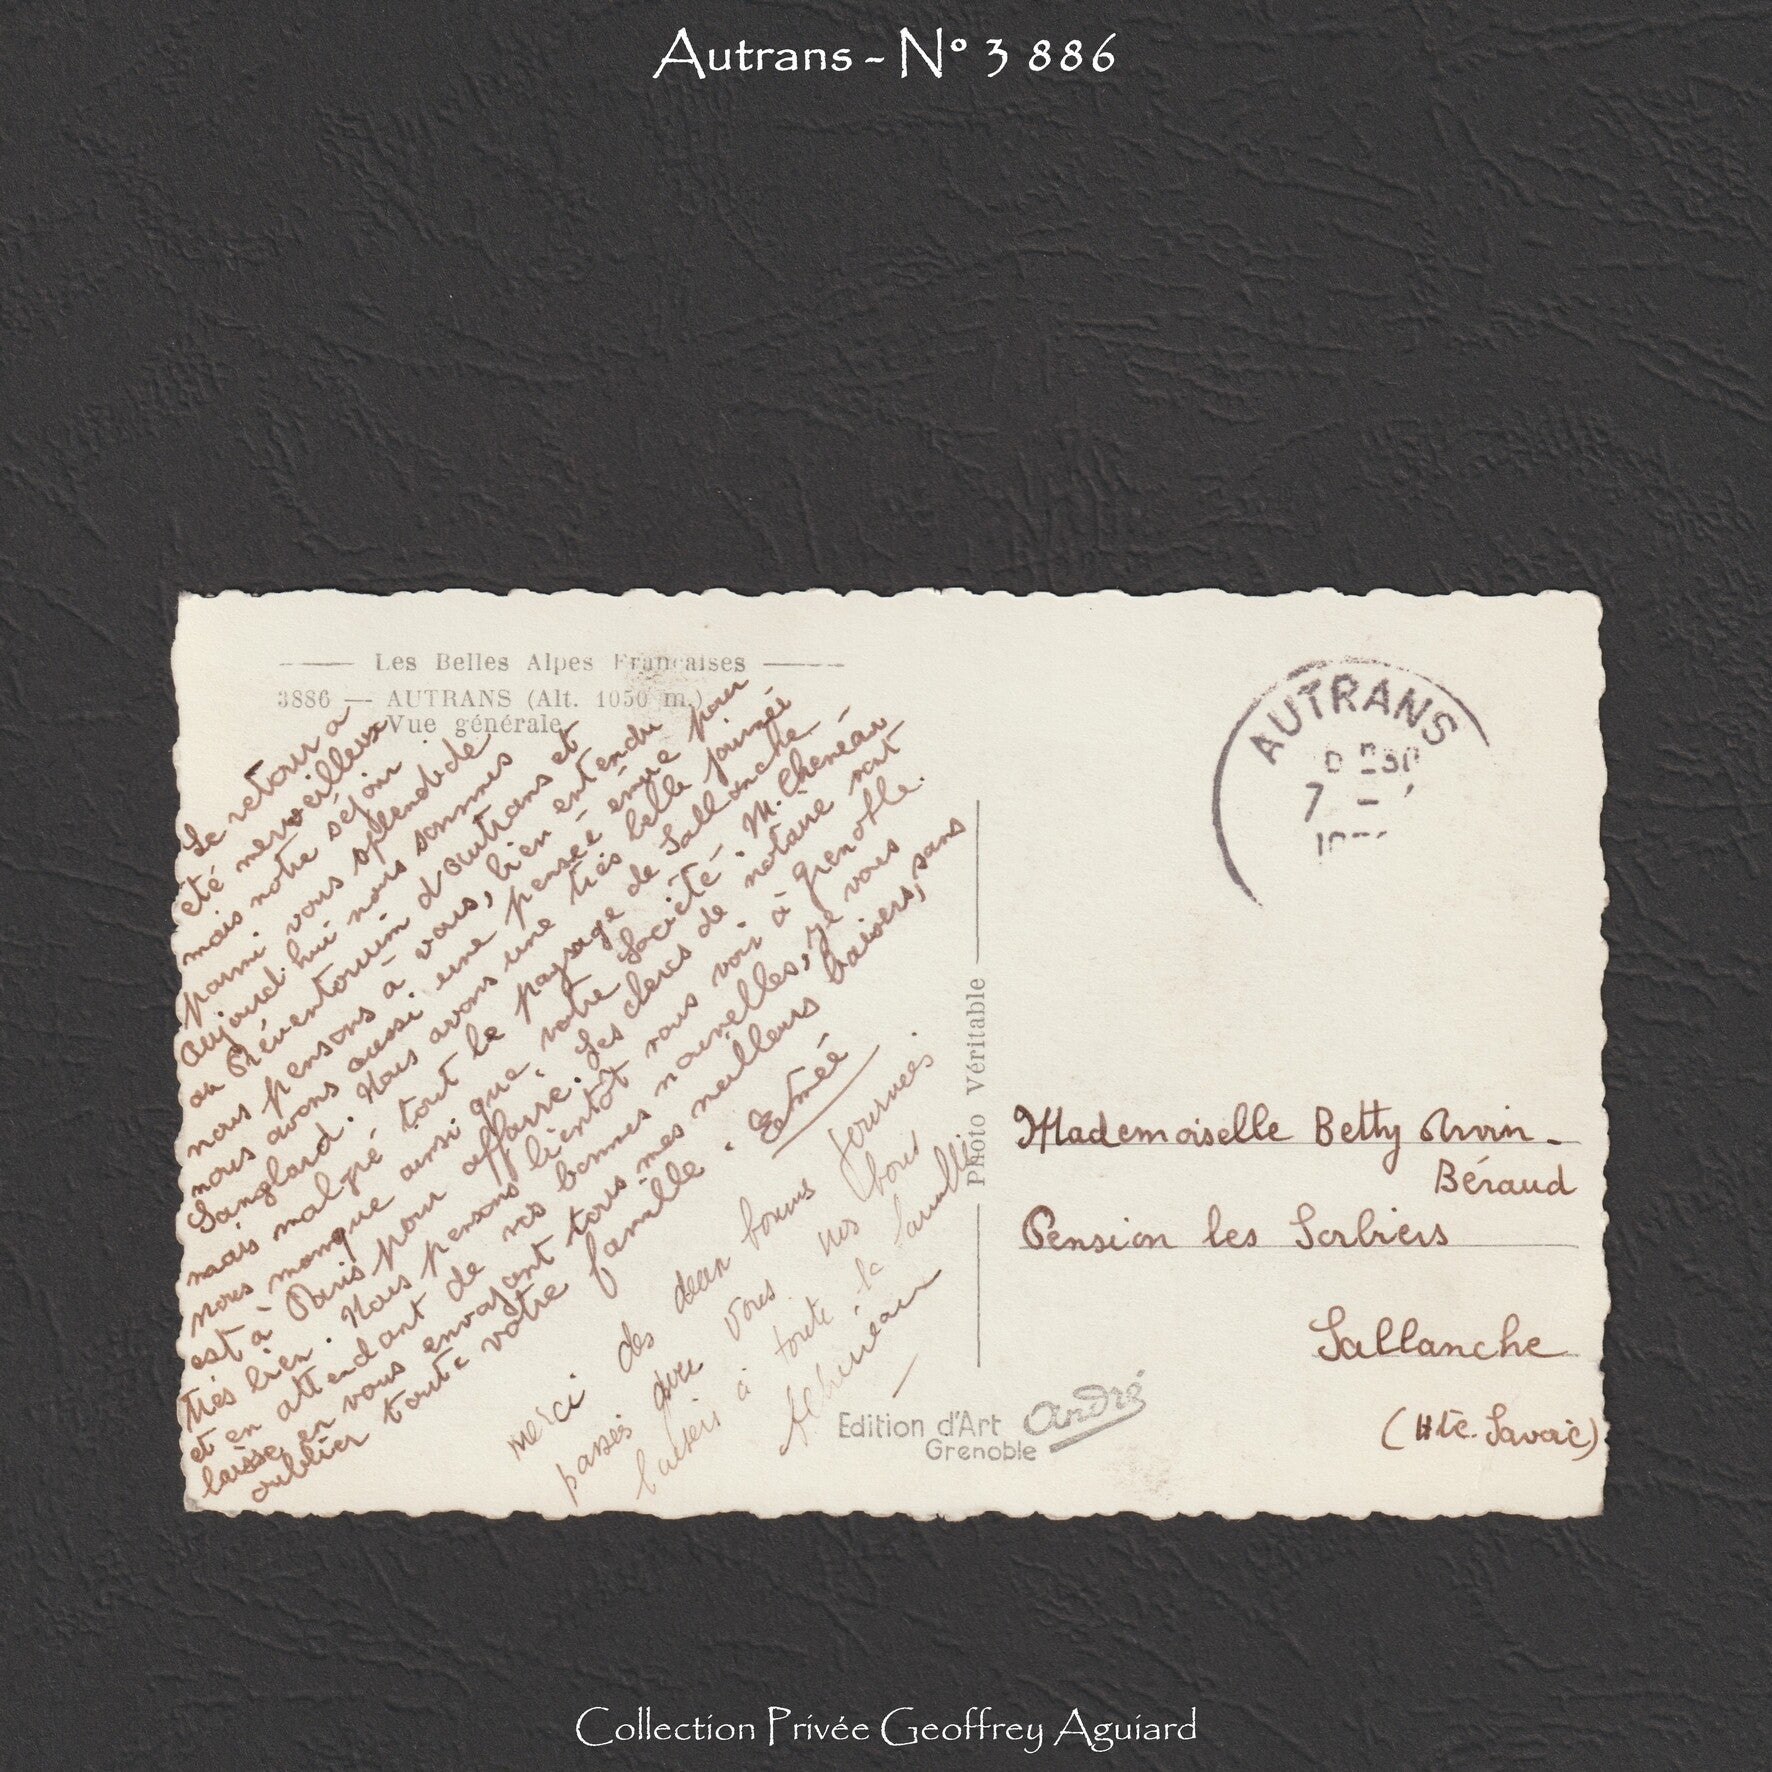 Autrans - N° 3 886
Les Belles Alpes Françaises
3886 — AUTRANS (Alt. 1050 m.)
Vue générale
Le retour a
été merveilleux
mais notre séjour
parmi vous splendide
Aujourd'hui nous sommes
au Préventorium d'Autrans et
nous pensons à vous, bien entendu
nous avons aussi une pensée émue pour
Sanglard. Nous avons une très belle journée
mais malgré tout le paysage de Sallanche
nous manque ainsi que votre Société. M. Cheneau
est à Paris pour affaire. Les clercs de notaire vont
très bien. Nous pensons bientôt vous voir à Grenoble.
et en attendant de vos bonnes nouvelles, je vous
laisse en vous envoyant tous mes meilleurs baisers, sans
oublier toute votre famille.
Aimée
merci des bonnes journées
passés avec vous. nos
baisers à toute la famille
AUTRANS
7 -
Photo Véritable
Mademoiselle Betty Arvin-
Béraud
Pension les Sorbiers
Sallanche
(Hte. Savoie)
Edition d'Art André
Grenoble
Collection Privée Geoffrey Aguiard